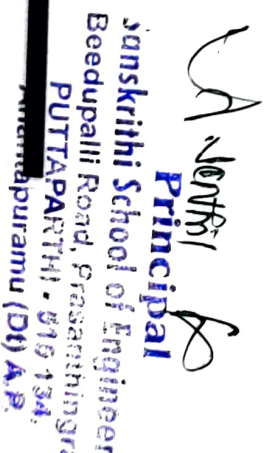 Principal
Sanskrithi School of Engineer
Beedupalli Road, Prasanthingra
PUTTAPARTHI - 515 134.
Anantapuramu (Dt) A.P.